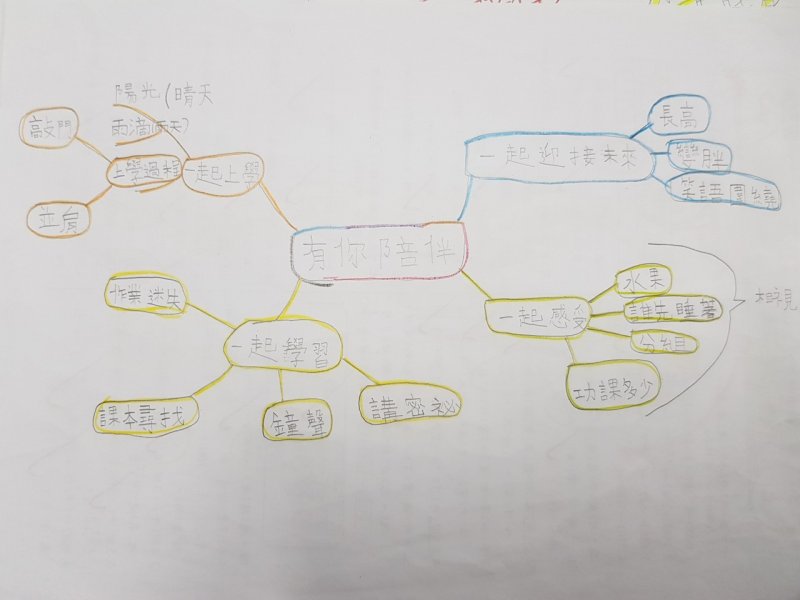 有你陪伴
一起上學
陽光(晴天
雨滴(雨天)
上學過程
敲門
並肩
一起迎接未來
長高
變胖
笑語圍繞
一起學習
作業迷失
課本尋找
鐘聲
講密祕
一起感受
水果
誰先睡著
分組
功課多少